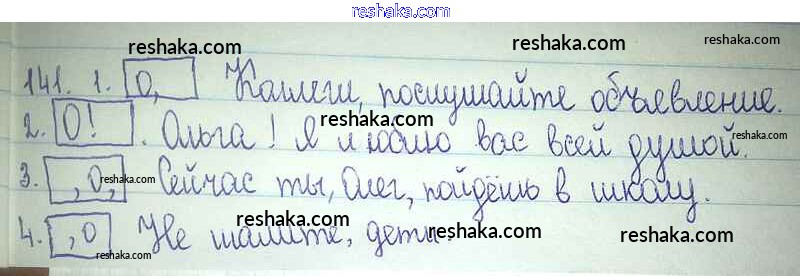 www.reshaka.com
reshaka.com reshaka.com
141. 1. О, Коллеги, послушайте объявление.
reshaka.com
2. О! . Ольга! Я люблю вас всей душой.
reshaka.com reshaka.com
3. , О, Сейчас ты, Олег, пойдёшь в школу.
reshaka.com reshaka.com
4. , О Не шалите, дети.
reshaka.com reshaka.com
reshaka.com